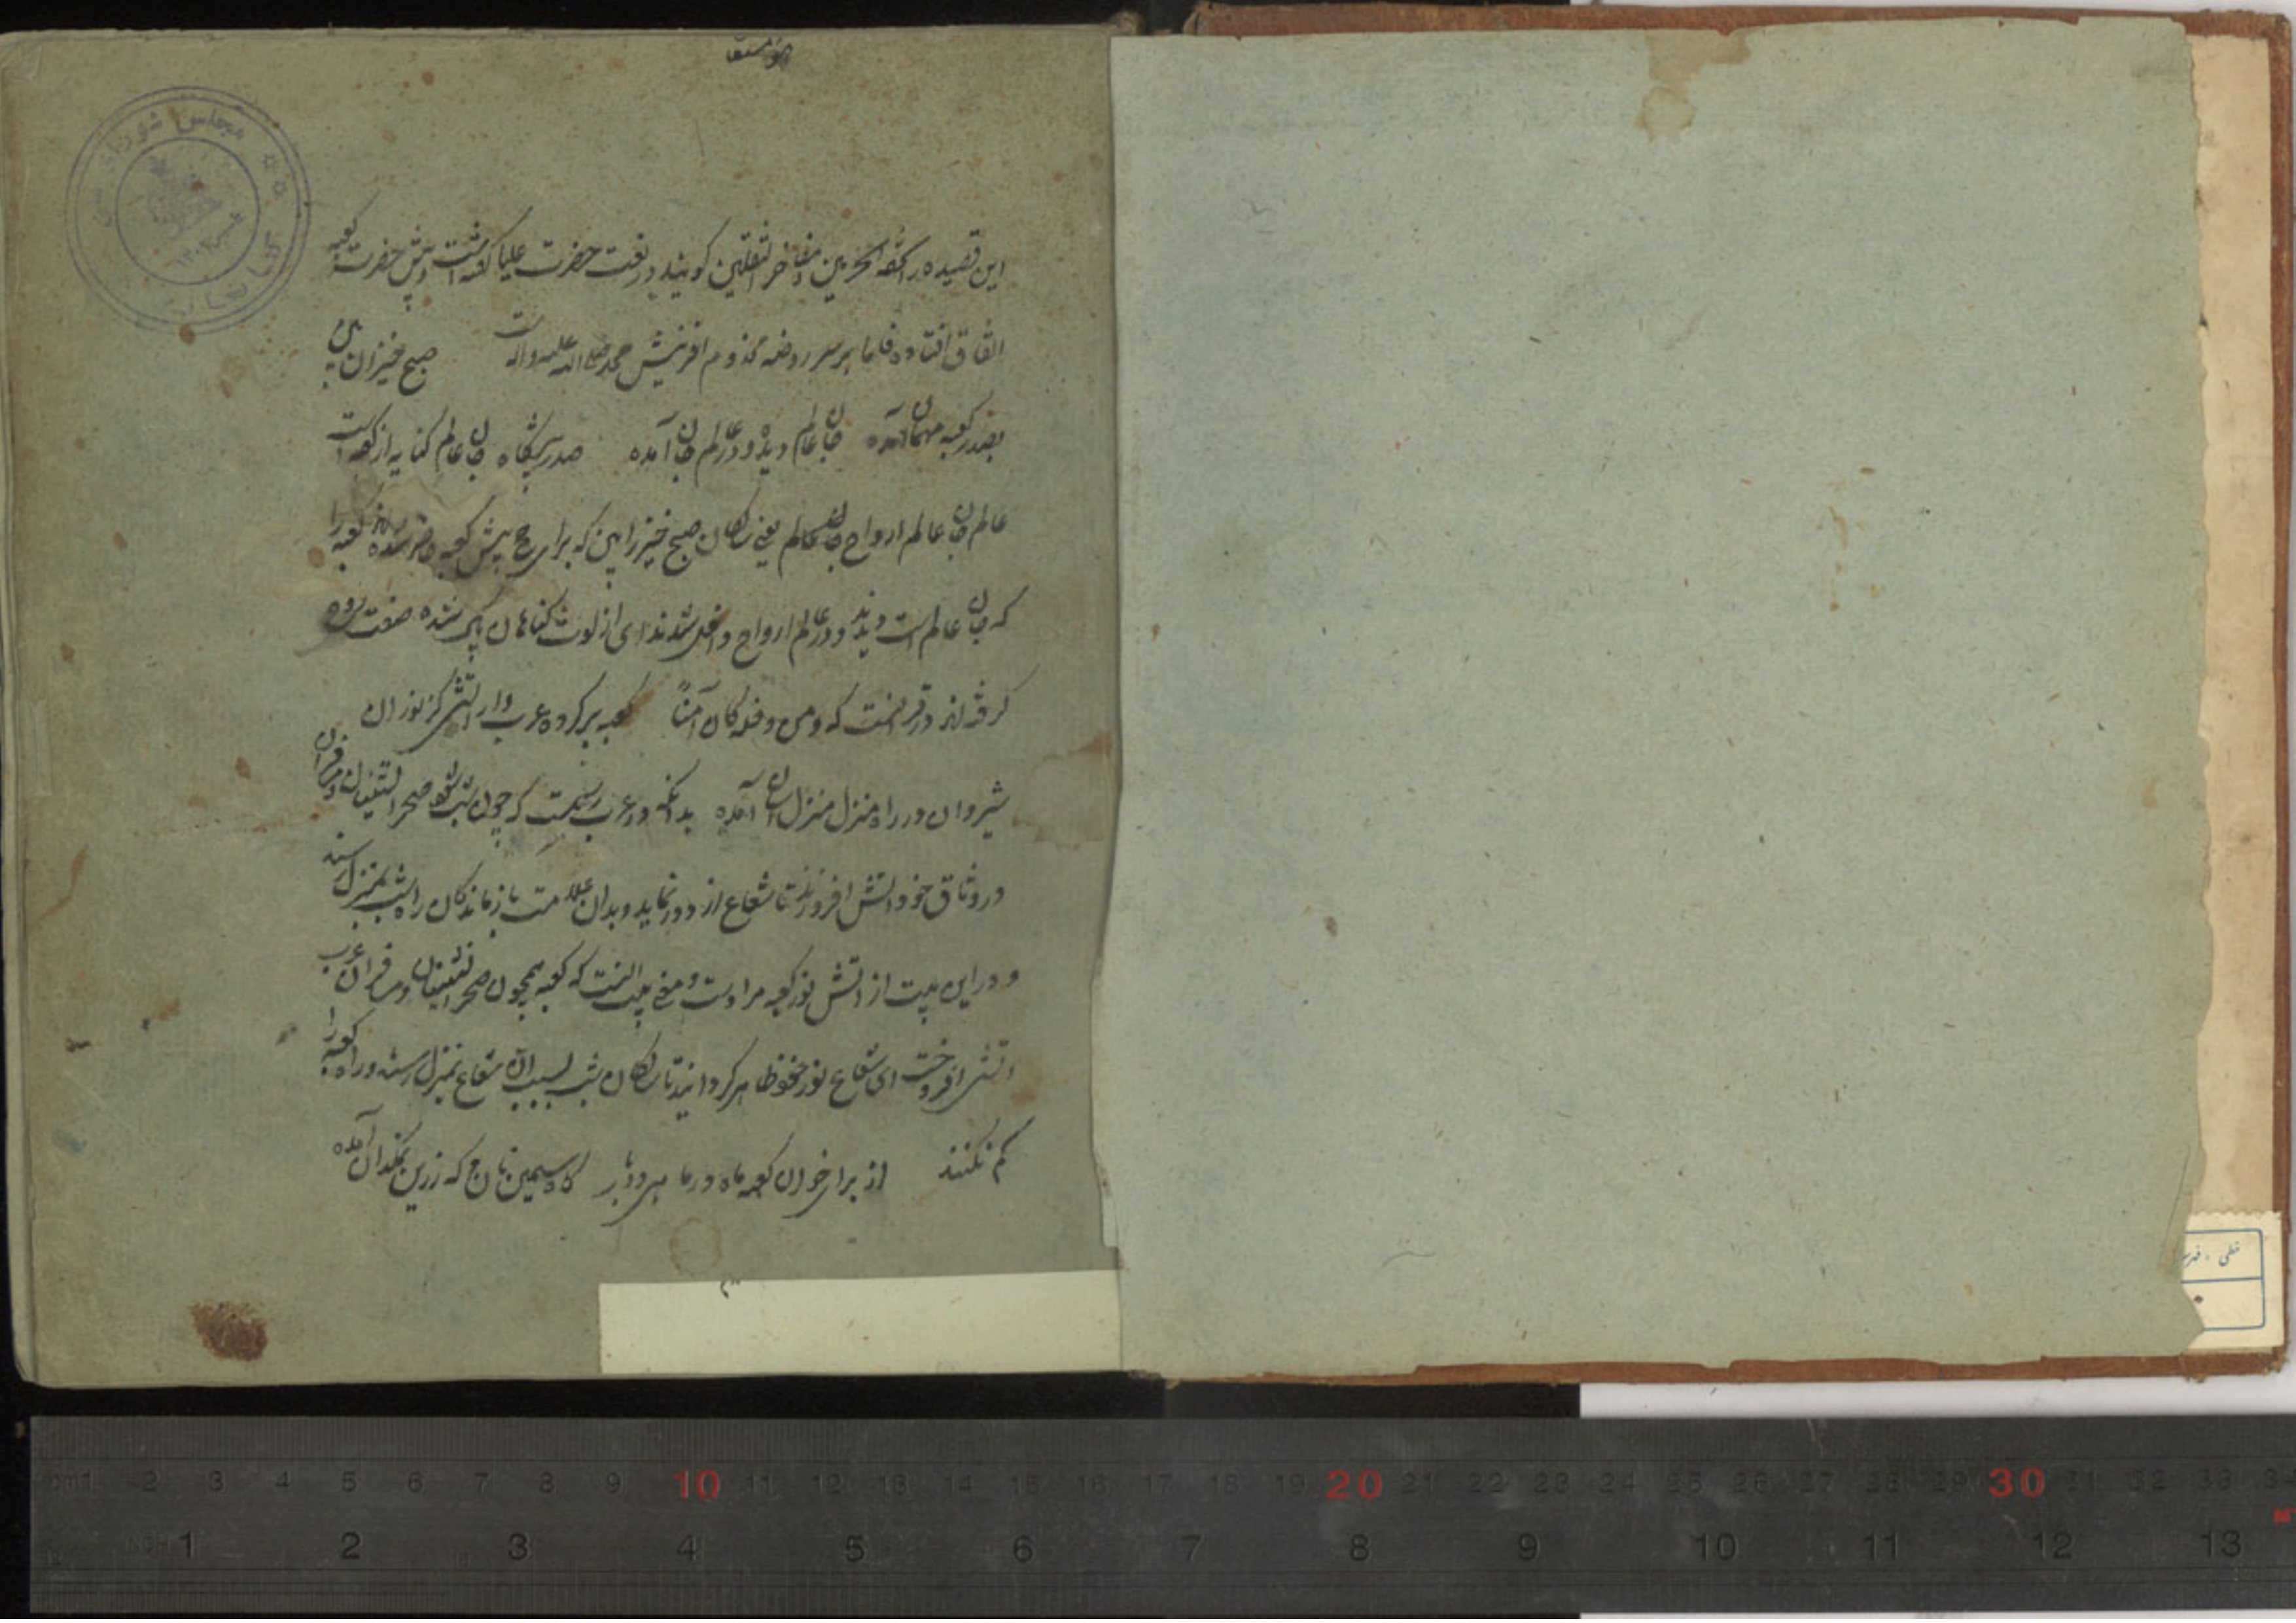 این قصیده را تحفة الحرمین و مفاخر الثقلین کویند در نعت حضرت علیا کعبه است و پیش حضرت کعبه
اتفاق افتاده فاما بر سر روضه مخدوم افرینش محمد صلی الله علیه واله است صبح خیزان بین
بصدر کعبه مهمان آمده جان عالم دیده و در عالم جان آمده صدر پیشگاه جان عالم کنایه از کعبه است
عالم جان عالم ارواح جان عالم یعنی سالکان صبح خیز را بین که برای حج پیش کعبه حاضر شده‌اند کعبه را
که جان عالم است دیدند و در عالم ارواح داخل شدند ای از لوث کناهان پاک شده صفت روح
کرفته‌اند در قرانست که ومن دخله کان آمنا کعبه بر کرده عرب وار اتشی کز نور ان
شبروان در راه منزل منزل اسان آمده بدانکه در عرب رسمست که چون شب شود صحرا نشینان و مسافران
در وثاق خود اتش افروزند تا شعاع از دور نماید و بدان علامت باز ماندکان راه شب بمنزل رسند
و در این بیت از اتش نور کعبه مراد است و معنی بیت انست که کعبه همچون صحرا نشینان و مسافران عرب
اتشی افروخت ای شعاع نور خود ظاهر کردانید تا سالکان شب بسبب ان شعاع بمنزل رسند و راه کعبه را
کم نکنند از برای خوان کعبه ماه در ماهی دو بار کاه سیمین نان و که زرین نمکدان آمده